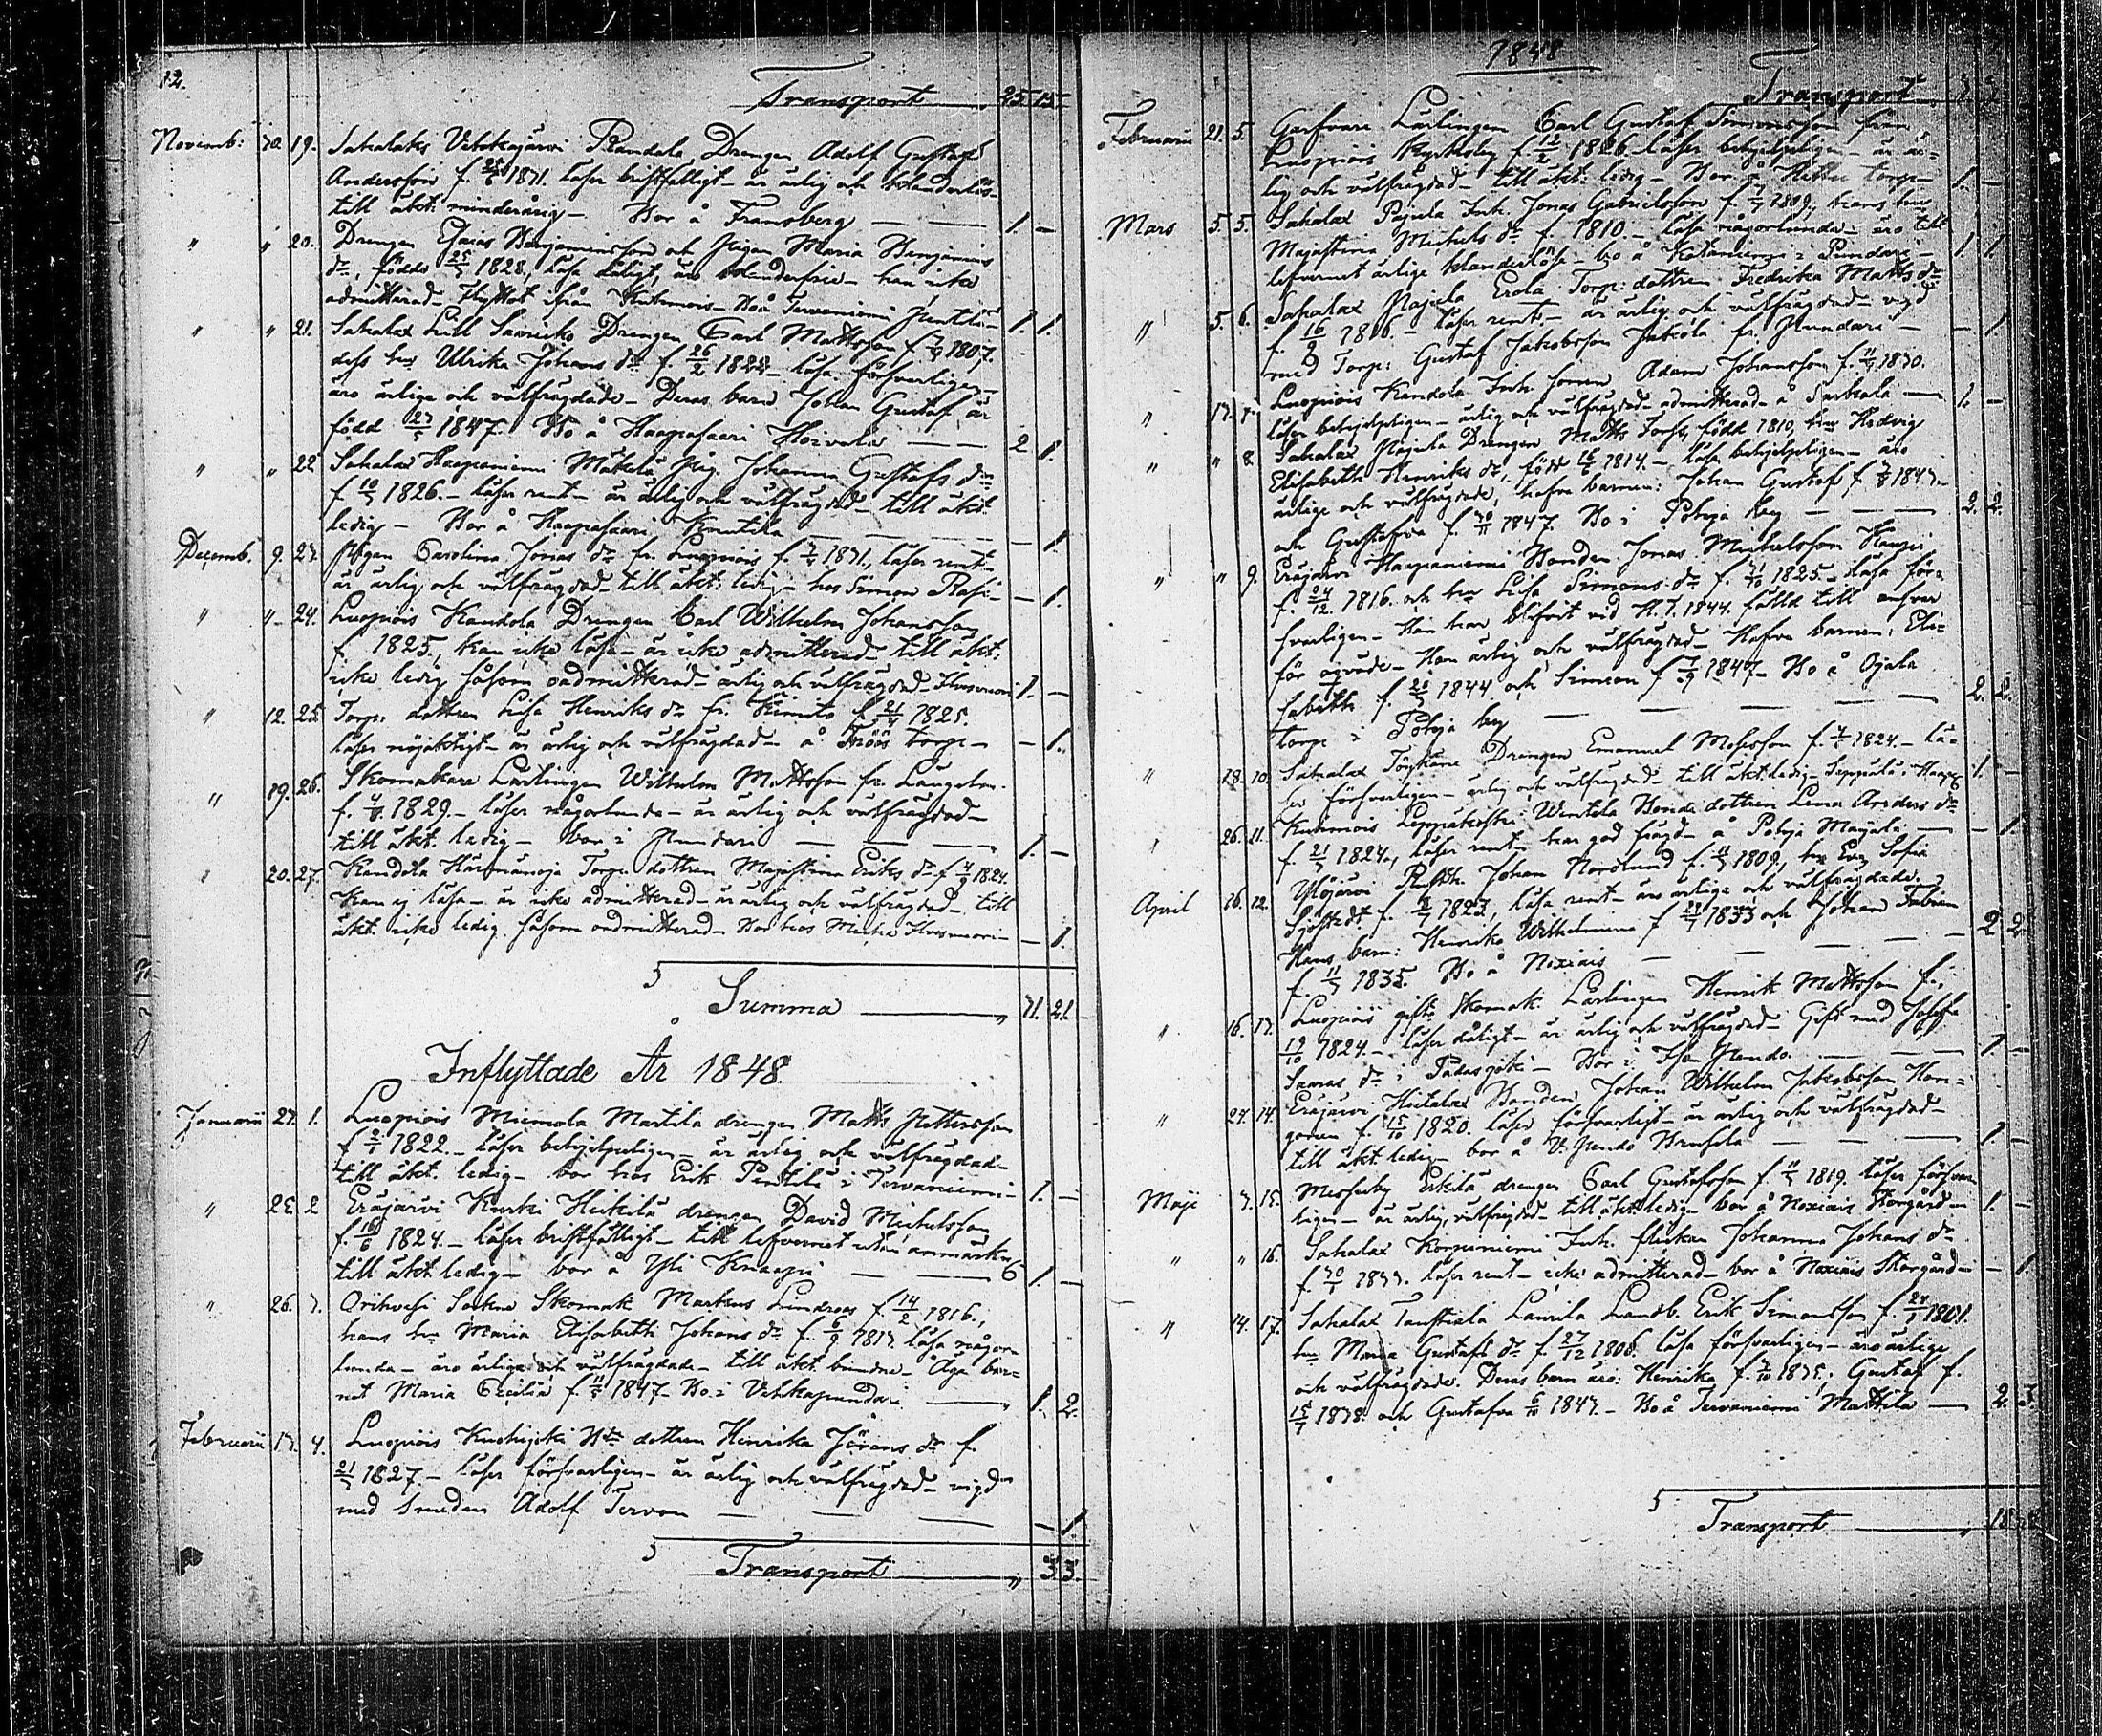 12.
Transport 25. 15.
Novemb: 30. 19. Sahalaks Vehkajärvi Pandala Drengen Adolf Gustaf
Andersson f. 25/6 1831. läser bristfälligt – är ärlig och klanderlös –
till äkt. minderårig – Bor å Fransberg — 1. –
" " 20. Drengen Esaias Benjaminsson och Pigan Maria Benjamins
dr, födde 25/3 1828, läsa dåligt, äro klanderfrie – han icke
admitterad – flyttat ifrån Kuhmois – Bo å Tervaniemi Penttilä – 1. 1.
" " 21. Sahalax Lill Saarioko Drengen Carl Mattsson f. 1807.
dess hu Ulrika Johans dr f. 26/2 1822 – läsa försvarligen –
äro ärlige och välfrägdade – Deras barn Johan Gustaf är
född 27/5 1847. Bo å Haapasaari Hoivala — 2 1.
" " 22 Sahalax Haapaniemi Mäkelä Pig. Johanna Gustafs dr
f 10/5 1826. – läser rent – är ärlig och välfrägdad – till äkt.
ledig – Bor å Haapasaari Knutila — 1.
Decemb. 9. 23. Pigan Carolina Jonas dr fr. Luopiois f. 1831, läser rent –
är ärlig och välfrägdad – till äkt. ledig – hos Simon Rasi – – 1.
" " 24. Luopiois Kandola Drengen Carl Wilhelm Johansson
f. 1825., kan icke läsa – är icke admitterad – till äkt.
icke ledig såsom oadmitterad – ärlig och välfrägdad – Ilvesvuori 1. –
" 12. 25. Torp. dottren Lisa Henriks dr fr. Kimito f. 21/4 1825.
läser nöjaktigt – är ärlig och välfrägdad – å torp – – 1.
" 19. 26. Skomakare Lärlingen Wilhelm Mattsson fr. Längelm.
f. 4/8 1829. – läser någorlunda – är ärlig och välfrägdad –
till äkt. ledig – bor i Pundari — 1. –
" 20. 27. Kandola Härmänoja Torp. dottren Majastina Eriks dr f 4/9 1824.
Kan ej läsa – är icke admitterad – är ärlig och välfrägdad – till
äkt. icke ledig såsom oadmitterad – Bor hos Ilvesvuori – – 1.
Summa 31. 21.
Inflyttade År 1848.
Januarii 23. 1. Luopiois Miemola Martila drengen Matts Pettersson
f. 2/1 1822. – läser behjelpeligen – är ärlig och välfrägdad –
till äkt. ledig – bor hos Erik Penttilä i Tervaniemi – 1. –
" 23. 2 Eräjärvi Kurki Heikilä drengen David Michelsson
f. 16/6 1824. – läser bristfälligt – till lefvernet utan anmärkn
till äkt. ledig – bor å Yli Knaapi — 1. –
" 26. 3. Orihvesi Sockn Skomak. Markus Lindroos f. 14/2 1816.,
hans hu Maria Elisabeth Johans dr f. 6/9 1813 läsa någor
lunda – äro ärlige och välfrägdade – till äkt. bundne – Äga bar=
net Maria Cecilia f. 11/5 1847 – Bo i Vehkapundari — 1. 2.
Februarii 13. 4. Luopiois Kuohijoki Bde dottren Henrika Jörans dr f.
21/3 1827 – läser försvarligen – är ärlig och välfrägdad – vigd
med Smeden Adolf Tervon — – 1
Transport " 3. 3.
1848
Transport 3. 3.
Februarii 21. 5. Garfvare Lärlingen Carl Gustaf Simonsson från
Luopiois Kyrkoby f. 12/2 1826 – läser behjelpeligen – är är=
lig och välfrägdad – till äkt. ledig – Bor å torp – 1. –
Mars 5. 5. Sahalax Pajula Inh. Jonas Gabrielsson f. 1809, hans hu
Majastina Michels dr f. 1810. – läsa någorlunda – äro till
lefvernet ärlige klanderlöse – bo å i Pundari – 1. 1.
" 5. 6. Sahalax Pajula Erola Torp. dottren Fredrika Matts dr
f. 16/9 1816. – läser rent – är ärlig och välfrägdad – vigd
med Torp. Gustaf Jakobsson Jakola fr. Pundari – – 1
" 17. 7. Luopiois Kandola Inh. sonen Adam Johansson f. 1830.
läser behjelpeligen – ärlig och välfrägdad – admitterad – å — 1. –
" " 8. Sahalax Pajula Drengen Matts född 1810, hu Hedvig
Elisabeth Henriks dr, född 16/6 1814. – läsa behjelpeligen – äro
ärlige och välfrägdade, hafva barnen: Johan Gustaf f. 1843 –
och Gustafva f. 30/11 1847. Bo i Pohja by — 2. 2.
" " 9. Eräjärvi Haapaniemi Bonden Jonas Michelsson Haapi
f. 24/12 1816. och hu Lisa Simons dr f. 1825. – läsa för=
svarligen – Han har blifvit vid H.T. 1844. fälld till ansvar
för – Hon ärlig och välfrägdad – Hafva barnen, Eli=
sabeth f. 20/5 1844 och Simeon f 7/9 1847 – Bo å Ojala
torp i Pohja by — 2. 2.
" 18. 10. Sahalax Töykänä Drengen Emanuel Mosesson f. 1824. – lä=
ser försvarligen – ärlig och välfrägdad – till äkt. ledig – Seppälä i 1. –
" 26. 11. Kuhmois Leppäkoski Wentola Bonde dottren Lena Anders dr
f. 21/5 1824, läser rent – har god frägd – å Pohja Maijala – – 1.
April 16. 12. Ylöjärvi Rusth. Johan Nordlund f. 11/5 1809, hu Eva Sofia
Sjöstedt f. 1823, läsa rent – äro ärlige och välfrägdade.
Hans barn: Henrika Wilhelmina f. 1833 och Johan Fabian
f. 11/5 1835. Bo å Noxiais — 2. 2.
" 16. 13. Luopiois gifte Skomak. Lärlingen Henrik Mattsson f.
19/10 1824. – läser dåligt – är ärlig och välfrägdad – Gift med Josefa
dr i Padasjoki – Bor i — 1. –
" 24. 14. Eräjärvi Hietalax Bonden Johan Wilhelm Jakobsson Hon=
gonen f. 15/10 1820. läser försvarligt – är ärlig och välfrägdad –
till äkt. ledig – bor å V: — 1. –
Maji 7. 15. Messuby Erkilä drengen Carl Gustafsson f. 11/5 1819. läser försvar
ligen – är ärlig, välfrägdad – till äkt. ledig – bor å Noxiais Storgård – 1. –
" " 16. Sahalax Korpiniemi Inh. flickan Johanna Johans dr
f. 30/1 1833. läser rent – icke admitterad – bor å Noxiais Storgård – – 1.
" 14. 17. Sahalax Taustiala Laurila Landb. Erik Simonsson f. 24/1 1801.
hu Maria Gustafs dr f. 27/12 1806. läsa försvarligen – äro ärlige
och välfrägdade. Deras barn äro: Henrika f. 1835, Gustaf f.
15/7 1838. och Gustafva 6/10 1843. – Bo å Tervaniemi Mattila — 2. 3.
Transport "